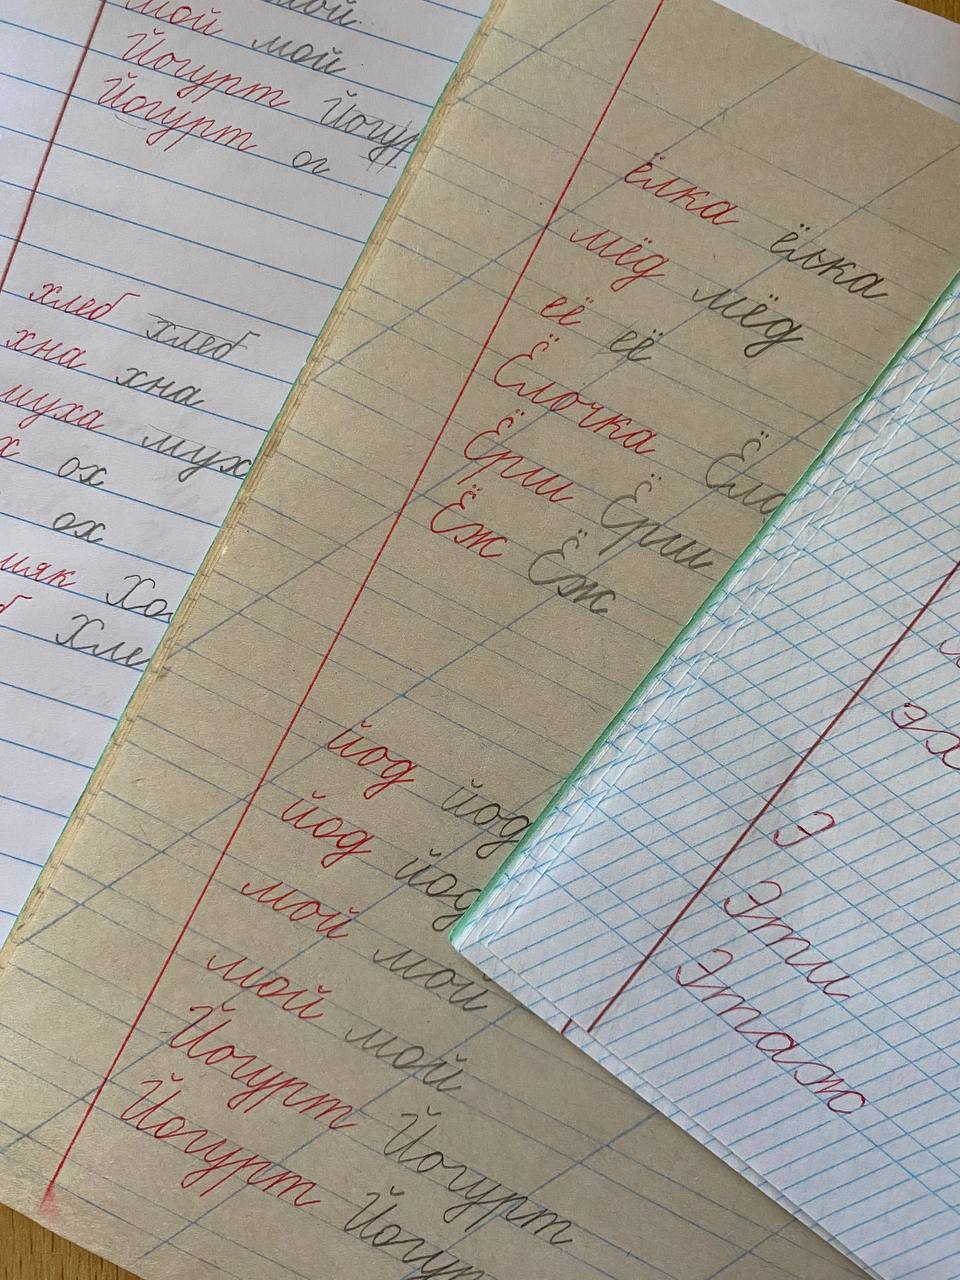 мой
мой мой
Йогурт Йогур
Йогурт ог
хлеб хлеб
хна хна
муха мух
х ох
ох
як Хо
б Хле
ёлка ёлка
мёд мёд
её её
Ёлочка Ёло
Ёрш Ёрш
Ёж Ёж
йод йод
йод йод
мой мой
мой мой
Йогурт Йогурт
Йогурт Йогур
эх
Э
Эти
Этаж